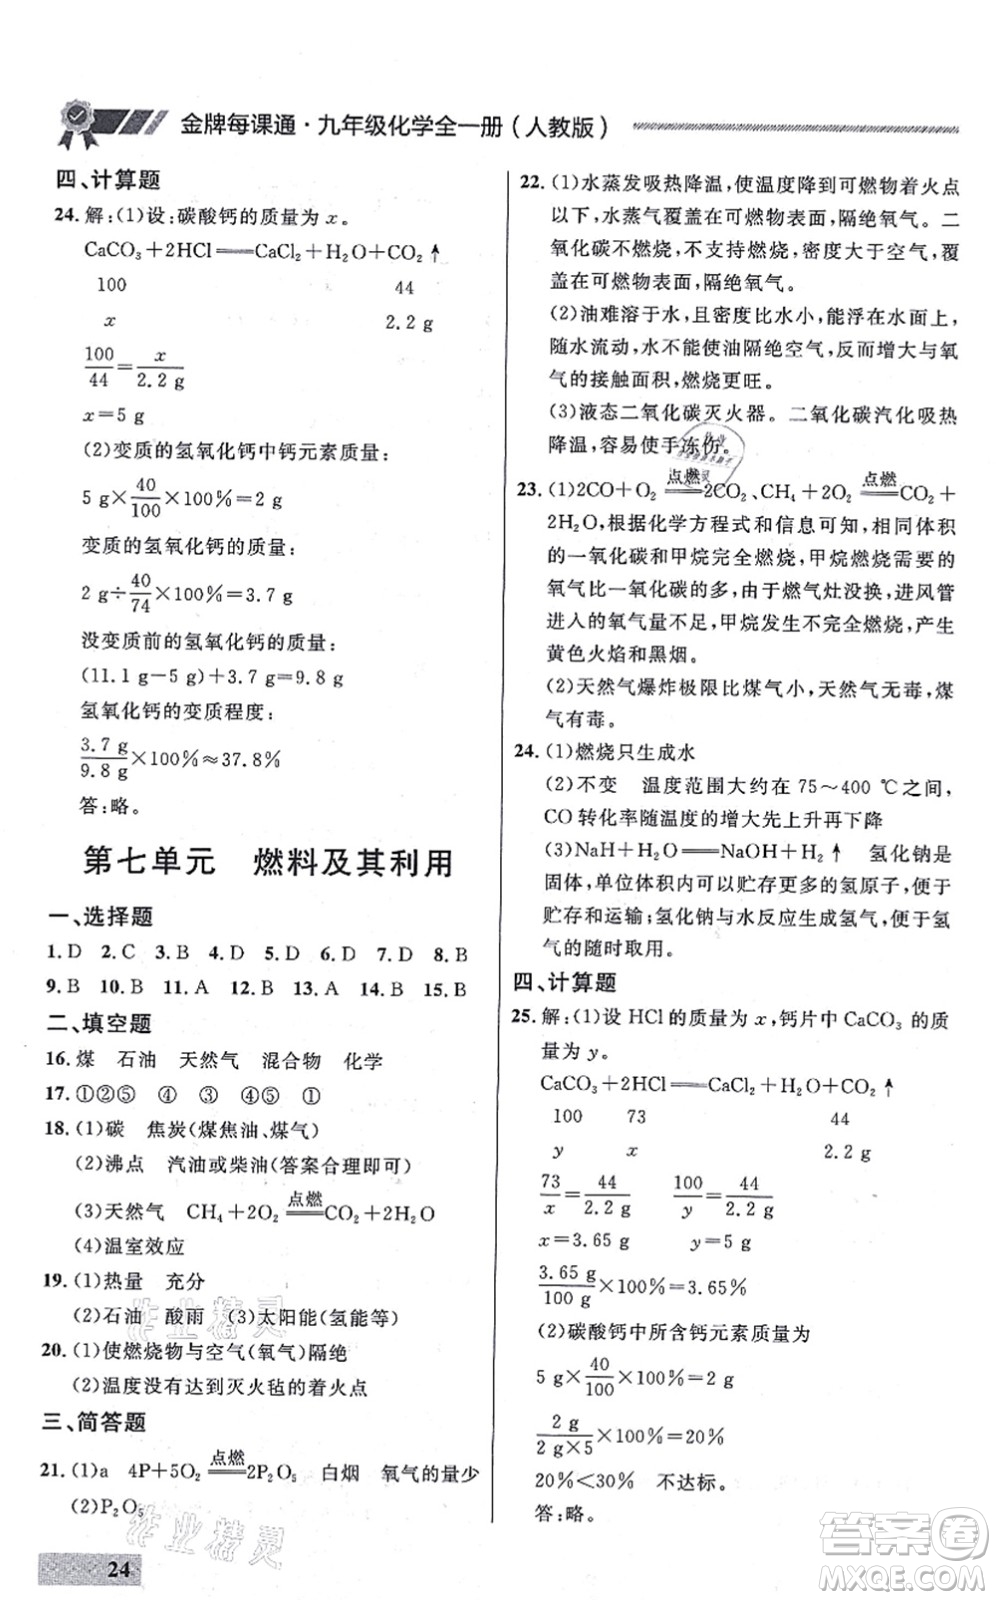 金牌每课通·九年级化学全一册(人教版)
四、计算题
24. 解:(1)设:碳酸钙的质量为 x。
CaCO₃+2HCl══CaCl₂+H₂O+CO₂↑
100 44
x 2.2 g
100/44=x/2.2 g
x=5 g
(2)变质的氢氧化钙中钙元素质量:
5 g×40/100×100%=2 g
变质的氢氧化钙的质量:
2 g÷40/74×100%=3.7 g
没变质前的氢氧化钙的质量:
(11.1 g-5 g)+3.7 g=9.8 g
氢氧化钙的变质程度:
3.7 g/9.8 g×100%≈37.8%
答:略。
第七单元 燃料及其利用
一、选择题
1. D 2. C 3. B 4. D 5. D 6. D 7. D 8. B
9. B 10. B 11. A 12. B 13. B 14. A 15. B
二、填空题
16. 煤 石油 天然气 混合物 化学
17. ①②⑤ ④ ③ ④⑤ ①
18. (1)碳 焦炭(煤焦油、煤气)
(2)沸点 汽油或柴油(答案合理即可)
(3)天然气 CH₄+2O₂ 点燃══ CO₂+2H₂O
(4)温室效应
19. (1)热量 充分
(2)石油 酸雨 (3)太阳能(氢能等)
20. (1)使燃烧物与空气(氧气)隔绝
(2)温度没有达到灭火毡的着火点
三、简答题
21. (1)a 4P+5O₂ 点燃══ 2P₂O₅ 白烟 氧气的量少
(2)P₂O₅
24
22. (1)水蒸发吸热降温,使温度降到可燃物着火点
以下,水蒸气覆盖在可燃物表面,隔绝氧气。二
氧化碳不燃烧,不支持燃烧,密度大于空气,覆
盖在可燃物表面,隔绝氧气。
(2)油难溶于水,且密度比水小,能浮在水面上,
随水流动,水不能使油隔绝空气,反而增大与氧
气的接触面积,燃烧更旺。
(3)液态二氧化碳灭火器。二氧化碳汽化吸热
降温,容易使手冻伤。
23. (1)2CO+O₂ 点燃══ 2CO₂、CH₄+2O₂ 点燃══ CO₂+
2H₂O,根据化学方程式和信息可知,相同体积
的一氧化碳和甲烷完全燃烧,甲烷燃烧需要的
氧气比一氧化碳的多,由于燃气灶没换,进风管
进入的氧气量不足,甲烷发生不完全燃烧,产生
黄色火焰和黑烟。
(2)天然气爆炸极限比煤气小,天然气无毒,煤
气有毒。
24. (1)燃烧只生成水
(2)不变 温度范围大约在 75～400 ℃之间,
CO 转化率随温度的增大先上升再下降
(3)NaH+H₂O══NaOH+H₂↑ 氢化钠是
固体,单位体积内可以贮存更多的氢原子,便于
贮存和运输;氢化钠与水反应生成氢气,便于氢
气的随时取用。
四、计算题
25. 解:(1)设 HCl 的质量为 x,钙片中 CaCO₃ 的质
量为 y。
CaCO₃+2HCl══CaCl₂+H₂O+CO₂↑
100 73 44
y x 2.2 g
73/x=44/2.2 g 100/y=44/2.2 g
x=3.65 g y=5 g
3.65 g/100 g×100%=3.65%
(2)碳酸钙中所含钙元素质量为
5 g×40/100×100%=2 g
2 g/2 g×5×100%=20%
20%<25% 不达标。
答:略。
作业精灵
作业精灵
答案圈
MXQE.COM